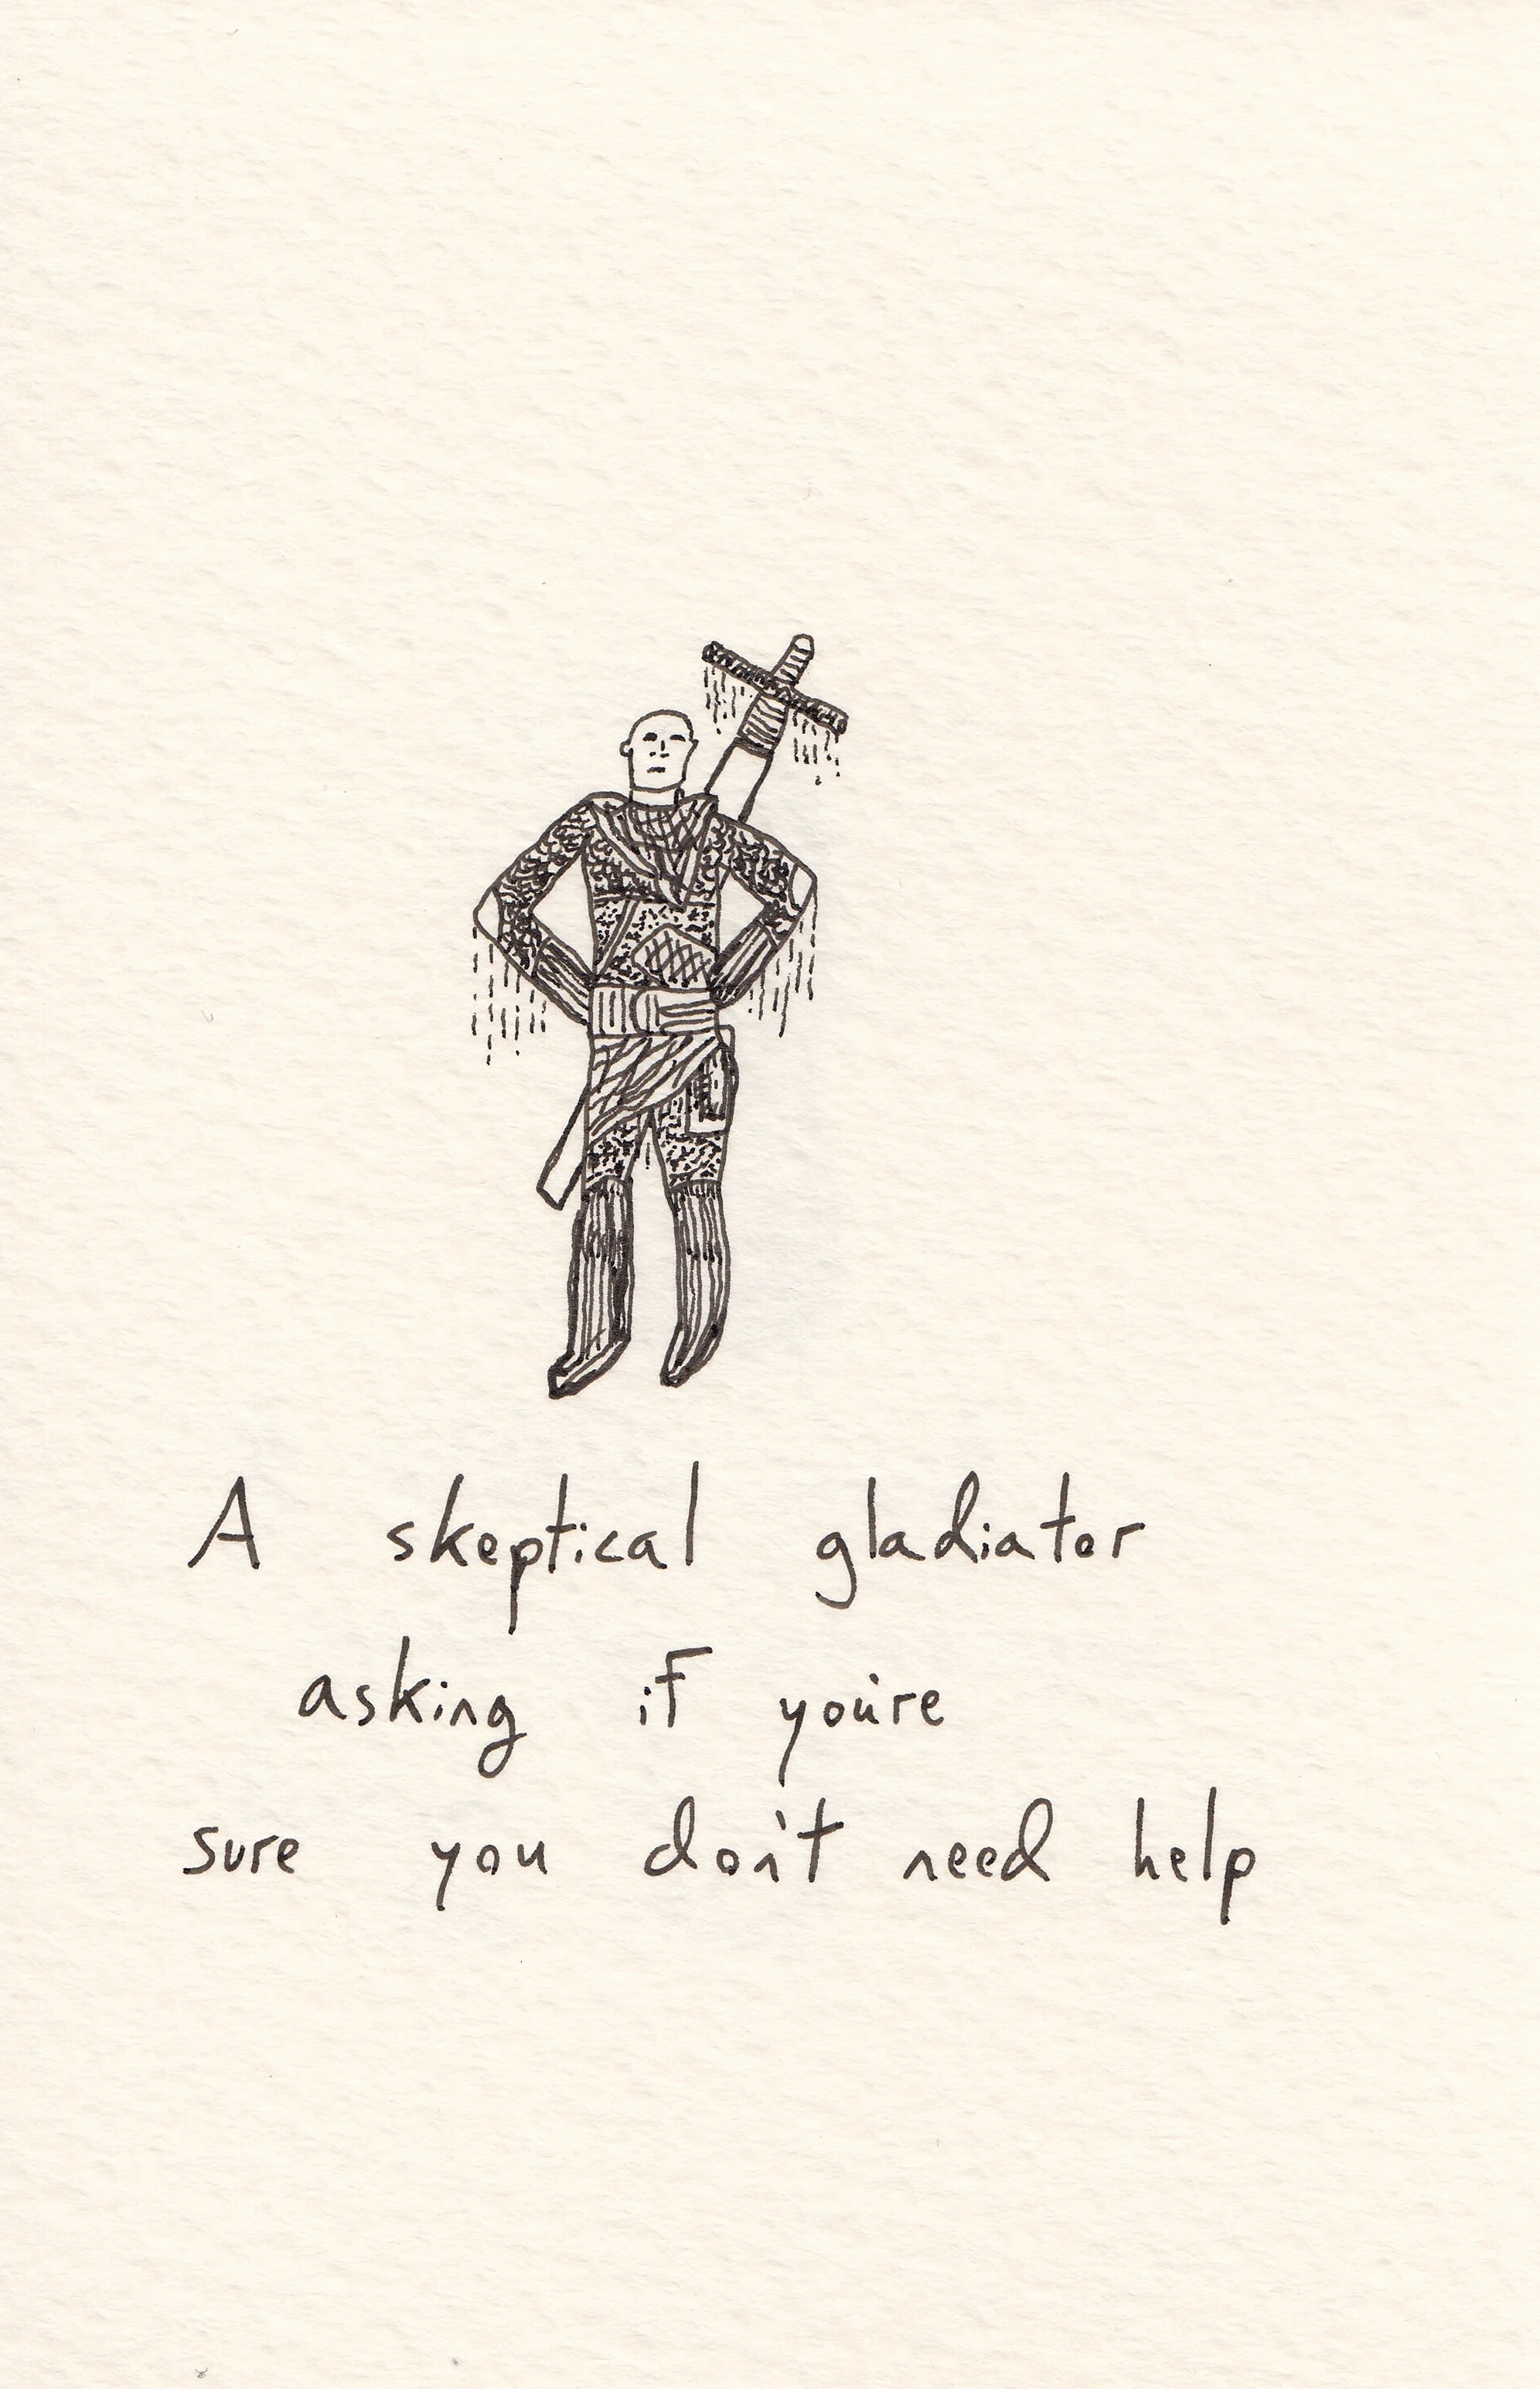 A skeptical gladiator
asking if you're
sure you don't need help